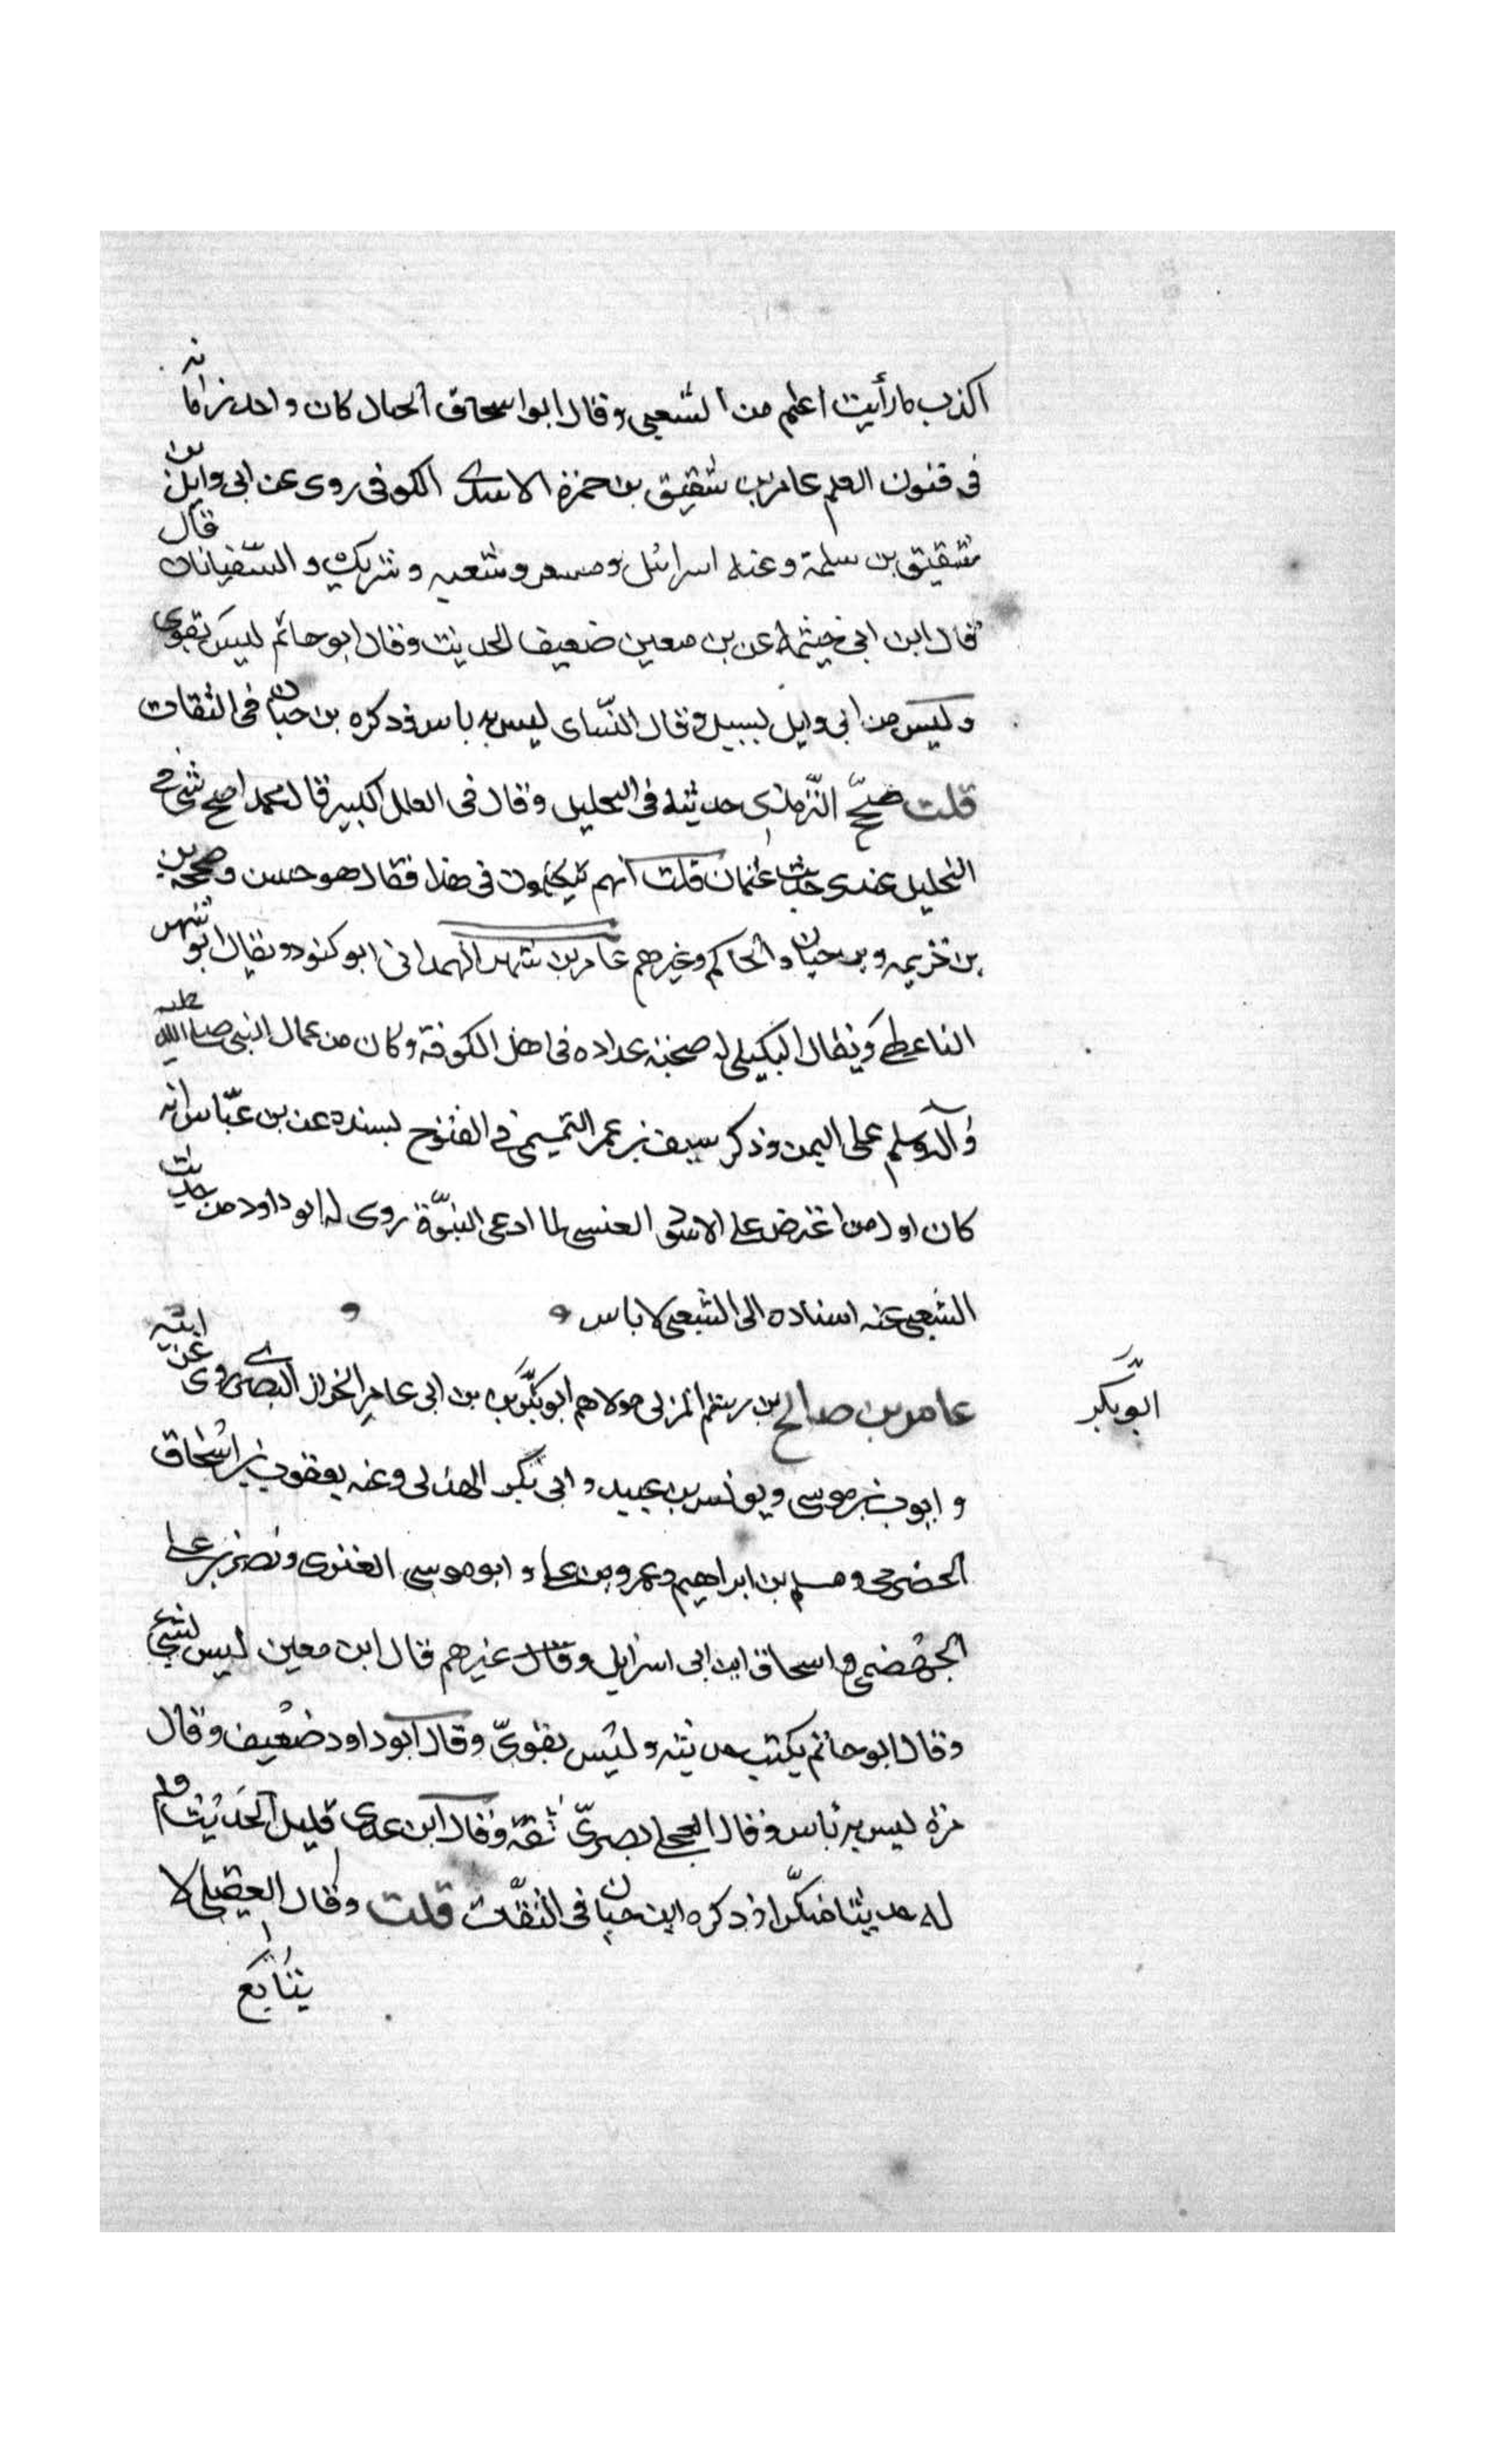 اكذب ما رأيت اعلم من الشعبى وقال ابو اسحاق الحبال كان واحد زمانه
فى فنون العلم عامر بن شقيق بن حمزة الاسدى الكوفى روى عن ابى وايل بن
شقيق بن سلمة وعنه اسرائيل ومسعر وشعبه وشريك والسّفيانان قال
قال ابن ابى خيثمة عن بن معين ضعيف الحديث وقال ابو حاتم ليس بقوى
وليس من ابى وايل لسبيل وقال النّساى ليس به باس وذكره بن حبان فى الثقات
قلت صحّح التّرمذى حديثه فى التحليل وقال فى العلل الكبير قال محمد اصح شى فى
التحليل عندى حديث عثمان قلت انهم يتكلمون فى هذا فقال هو حسن وصححه بن
بن خزيمه وبن حبان والحاكم وغيرهم عامر بن شهر الهمدانى ابو كنود ويقال ابو شهر
الناعطى ويقال البكيلى له صحبته عداده فى اهل الكوفة وكان من عمال النبى صلى الله عليه
وآله وسلم على اليمن وذكر سيف بن عمر التميمى فى الفتوح بسنده عن بن عبّاس انه
كان اول من اعترض على الاسود العنسى لما ادعى النبوّة روى له ابو داود من حديث
الشعبى عنه اسناده الى الشعبى لا باس
عامر بن صالح بن رستم المزنى مولاهم ابو بكر بن ابى عامر الخزاز البصرى روى عن ابيه
ابو بكر
وايوب بن موسى ويونس بن عبيد وابى بكر الهذلى وعنه يعقوب بن اسحاق
الحضرمى ومسلم بن ابراهيم وعمرو بن على وابو موسى العنزى ونصر بن على
الجهضمى واسحاق ابن ابى اسرايل وقال غيرهم قال ابن معين ليس بشئ
وقال ابو حاتم يكتب حديثه وليس بقوىّ وقال ابو داود ضعيف وقال
مرة ليس به بأس وقال العجلى بصرىّ ثقة وقال ابن عدى قليل الحديث ولم
له حديثا منكرا وذكره ابن حبان فى الثقات قلت وقال العقيلى لا
يتابع